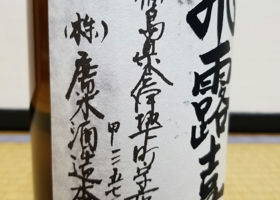 飛露喜
福島県会津坂下町
甲三五七
(株)廣木酒造本